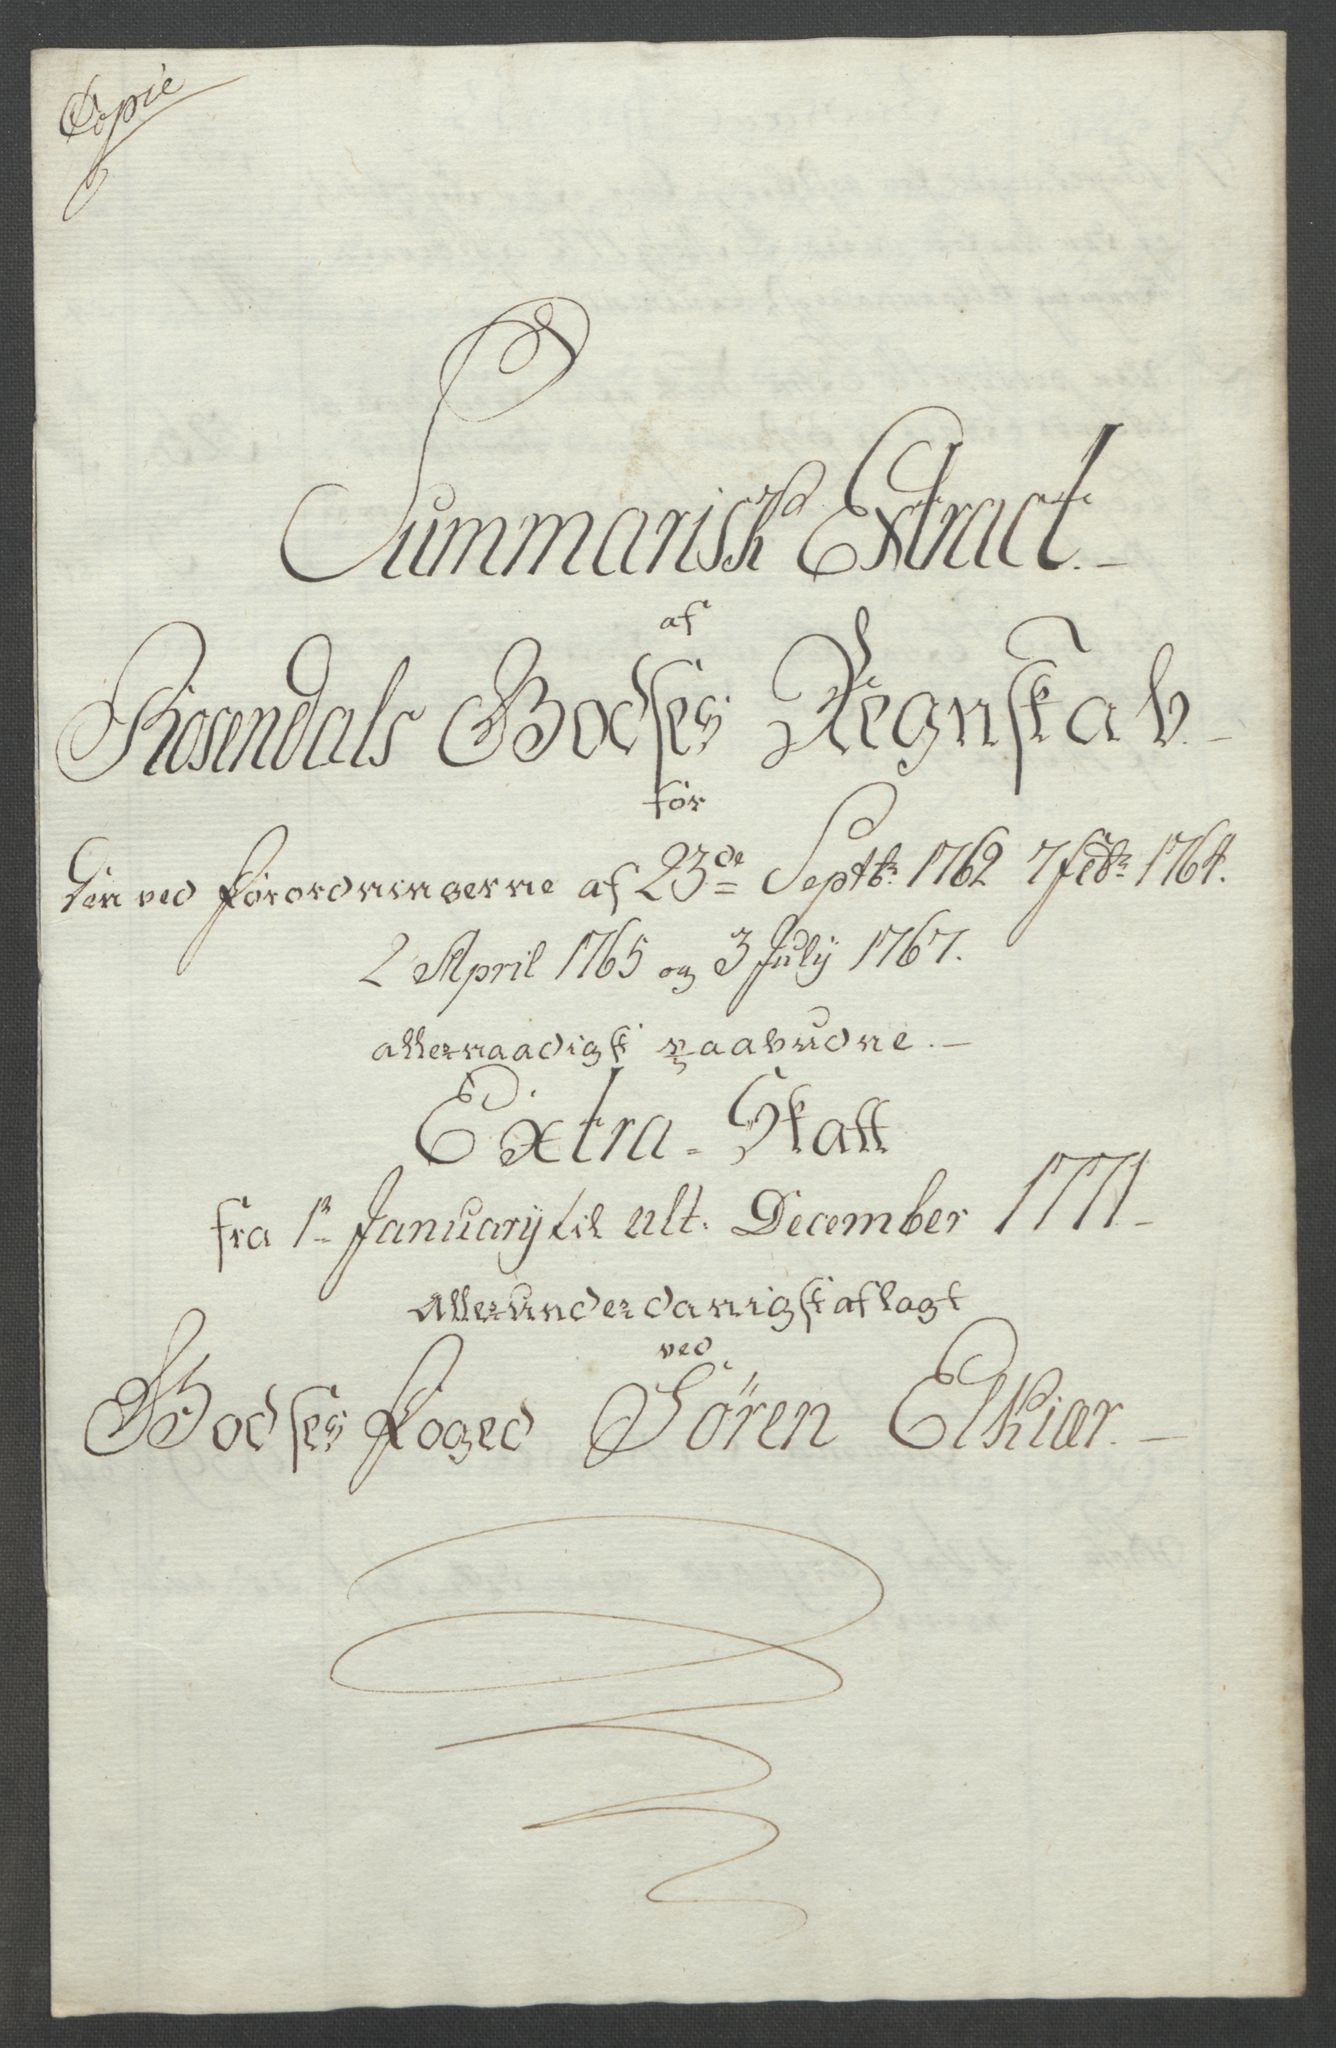 Copie
Summarisk Extract.
af
Rosendals Godses Regnskab.
for
den ved forordningerne af 23de Septbr. 1762 7 febr. 1764.
2 April 1765 og 3 July 1767.
allernaadigst paabudne.
Extra-Skatt
fra 1r January til ult. December 1771
Allerunderdanigst aflagt
ved
Godses foged Sören Elkiær.